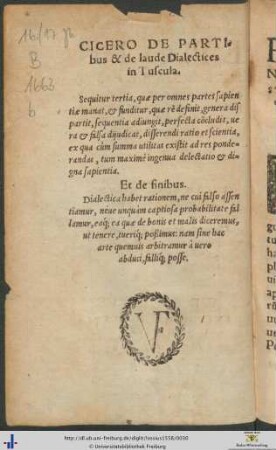 16/17 
B
1663
b
CICERO DE PARTI-
bus & de laude Dialectices
in Tuscula.
Sequitur tertia, quæ per omnes partes sapien
tiæ manat, & funditur, quæ rē definit, genera dis
partit, sequentia adiungit, perfecta cōcludit, ue
ra & falsa dijudicat, disserendi ratio et scientia,
ex qua cùm summa utilitas existit ad res ponde-
randas, tum maximè ingenua delectatio & di-
gna sapientia.
Et de finibus.
Dialectica habet rationem, ne cui falso assen
tiamur, néue unquàm captiosa probabilitate fal
lamur, eaq́; ea quæ de bonis et malis diceremus,
ut tenere, tueriq́; possimus: nam sine hac
arte quemuis arbitramur à uero
abduci, falliq́; posse.
VF
http://dl.ub.uni-freiburg.de/diglit/
© Universitätsbibliothek Freiburg